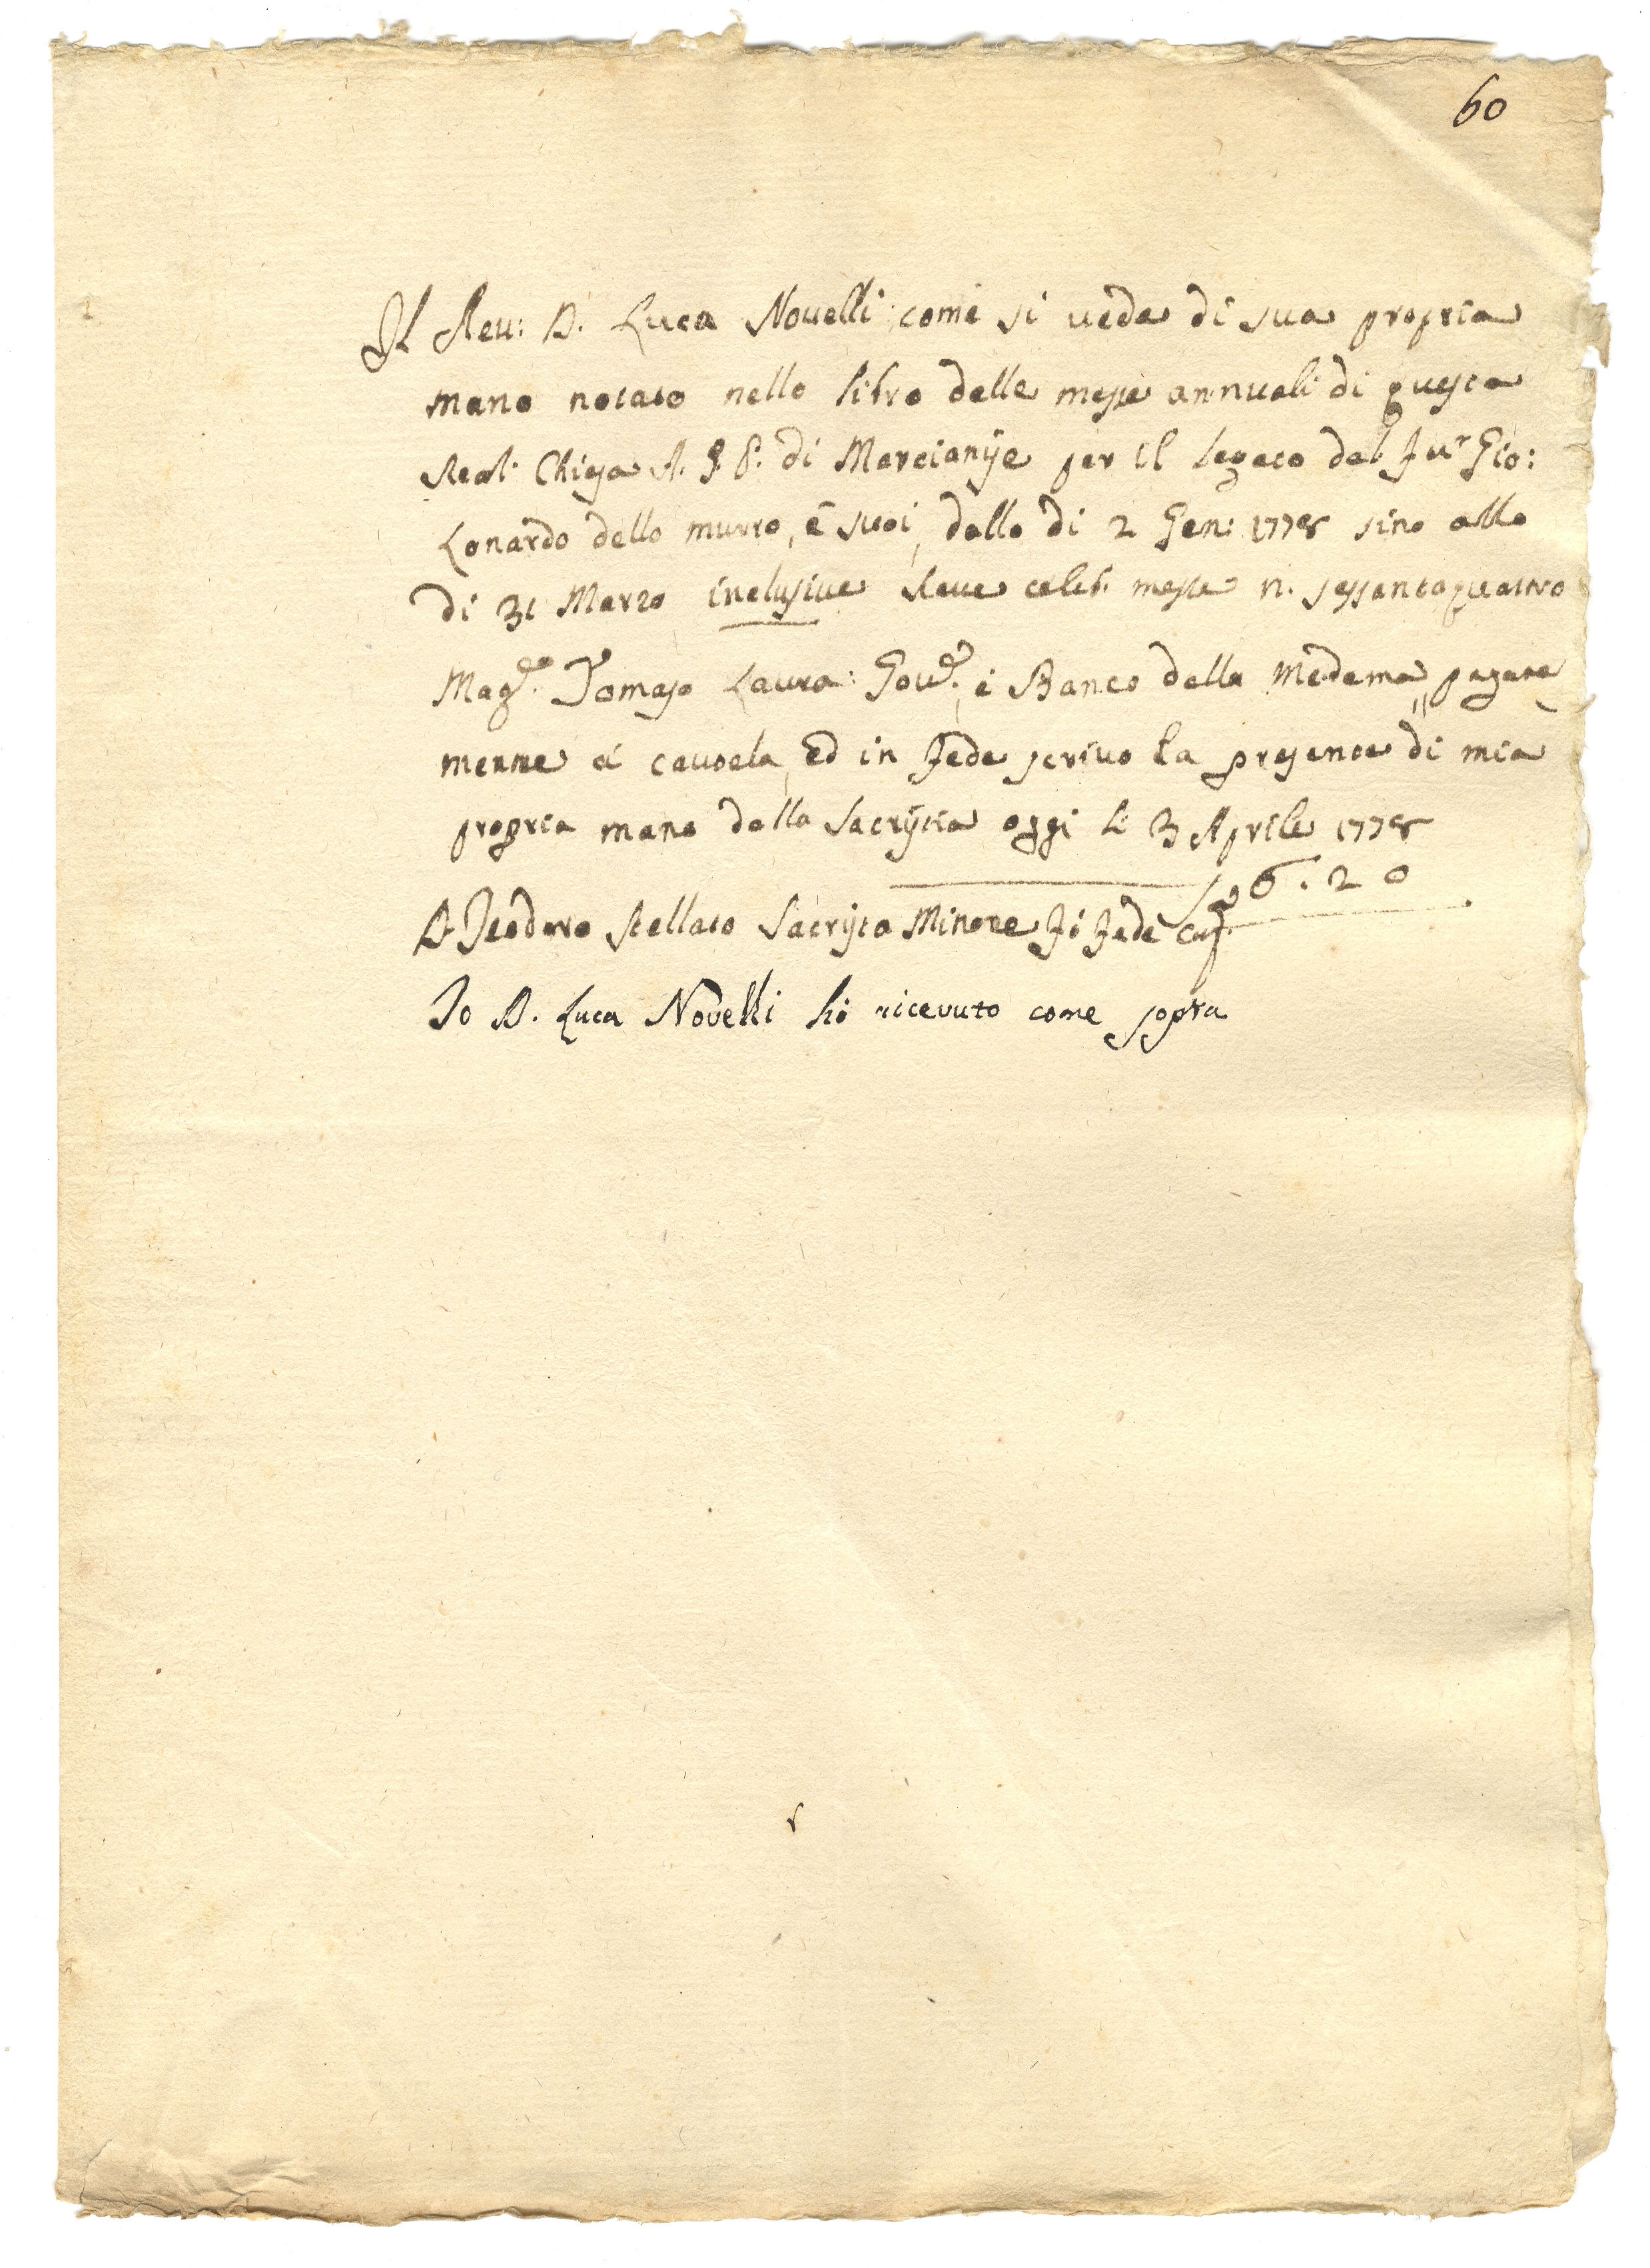 60
Il Rev: D. Luca Novelli come si vede di sua propria
mano notato nello libro delle messe annuali di questa
Real: Chiesa A. G. P. di Marcianise per il legato del Fu.r Gio:
Lonardo dello murro, è suoi, dallo di 2 Gen: 1778 sino allo
di 31 Marzo inclusive have celeb. messe n. sessantaquattro
Mag.co Tomaso Lauro: Gov.e è Banco della Medema, pagate
menne à cautela, Ed in fede scrivo la presente di mia
propria mano dalla Sacristia oggi li 3 Aprile 1778
6. 20
D. Teodoro Stellato Sacrista Minore fò fede
Io D. Luca Novelli hò ricevuto come sopra